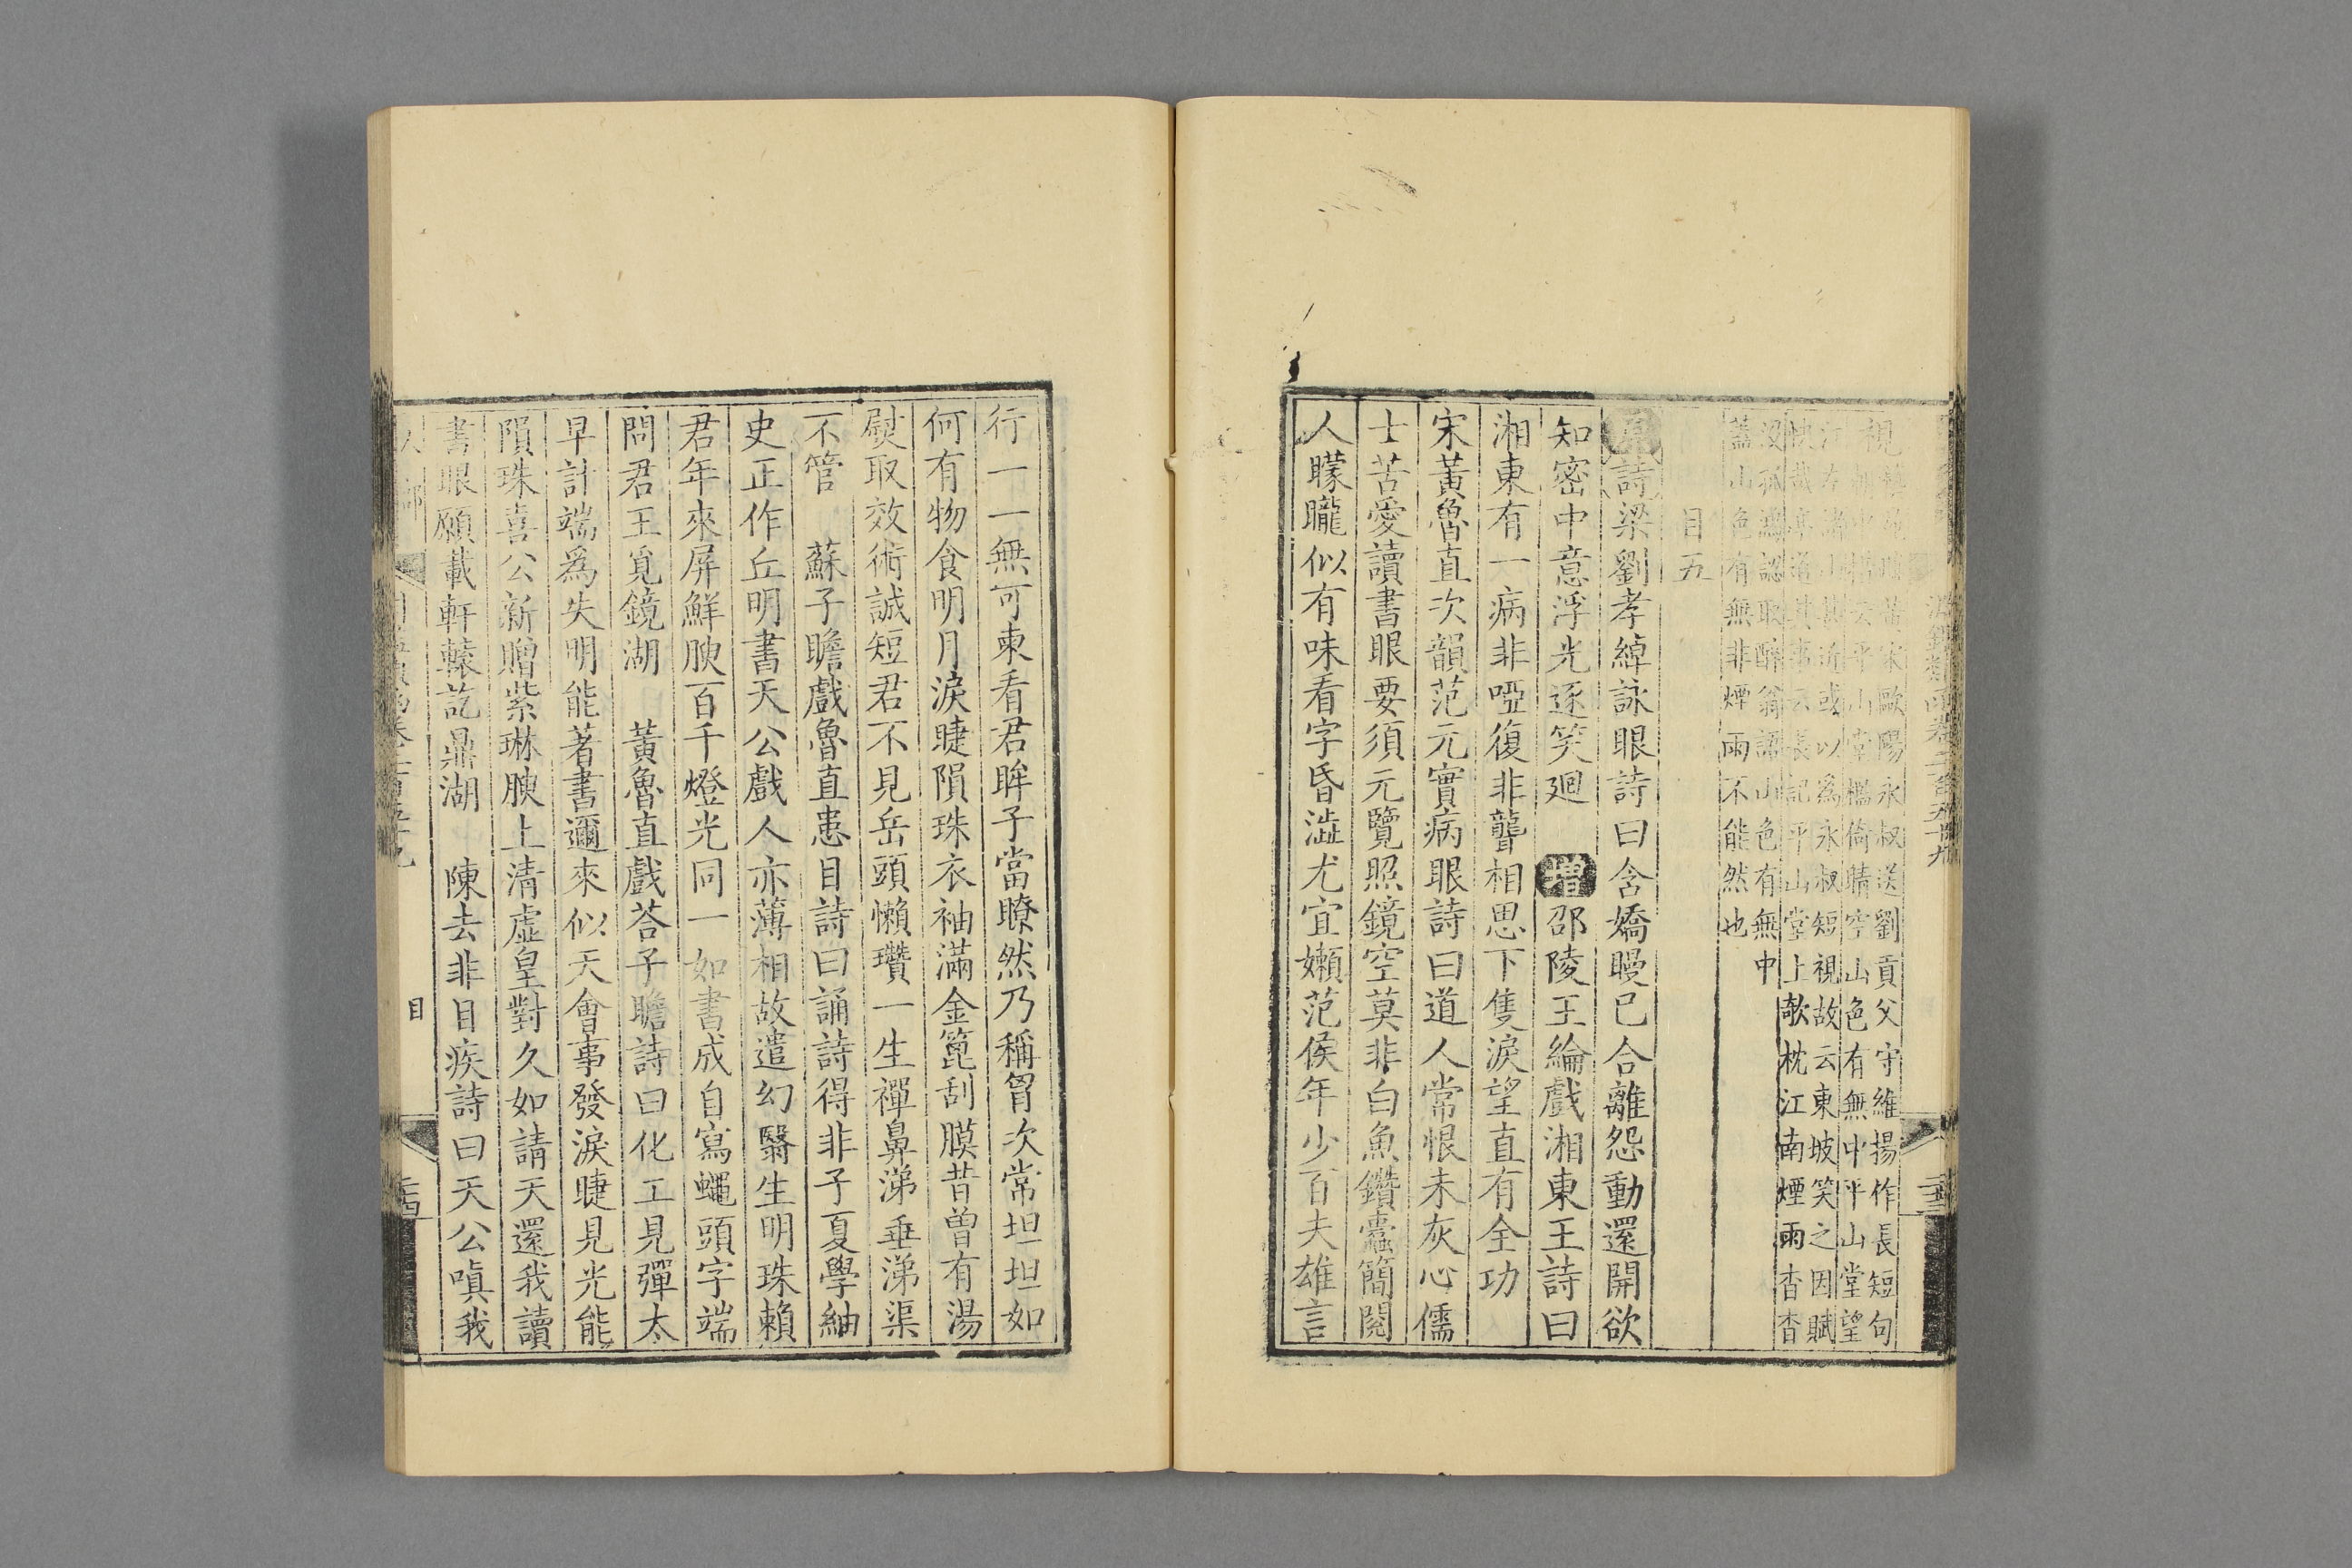 淵鑑類函卷二百五十九
視
黃宋歐陽永叔送劉貢父守維揚作長短句
去平山堂檻倚晴空山色有無中平山堂望
江左諸山甚近或以為永叔短視故云東坡笑之因賦
快哉亭道其事云長記平山堂上欹枕江南煙雨杳杳
沒孤鴻認取醉翁語山色有無中
蓋山色有無非煙雨不能然也
目五
原詩梁劉孝綽詠眼詩曰含嬌曼已合離怨動還開欲
知密中意浮光逐笑廻 增邵陵王綸戲湘東王詩曰
湘東有一病非啞復非聾相思下隻淚望直有全功
宋黃魯直次韻范元實病眼詩曰道人常恨未灰心儒
士苦愛讀書眼要須元覽照鏡空莫非白魚鑽蠹簡閱
人朦朧似有味看字昏澁尤宜嬾范侯年少百夫雄言
行一一無可柬看君眸子當瞭然乃稱胷次常坦坦如
何有物食明月淚睫隕珠衣袖滿金篦刮膜昔曾有湯
熨取效術誠短君不見岳頭懶瓚一生禪鼻涕垂涕渠
不管 蘇子瞻戲魯直患目詩曰誦詩得非子夏學紬
史正作丘明書天公戲人亦薄相故遣幻翳生明珠賴
君年來屏鮮腴百千燈光同一如書成自寫蠅頭字端
問君王覓鏡湖 黃魯直戲荅子瞻詩曰化工見彈太
早計端為失明能著書邇來似天會事發淚睫見光能
隕珠喜公新贈紫琳腴上清虛皇對久如請天還我讀
書眼願載軒轅訖鼎湖 陳去非目疾詩曰天公嗔我
人部
目
二十四